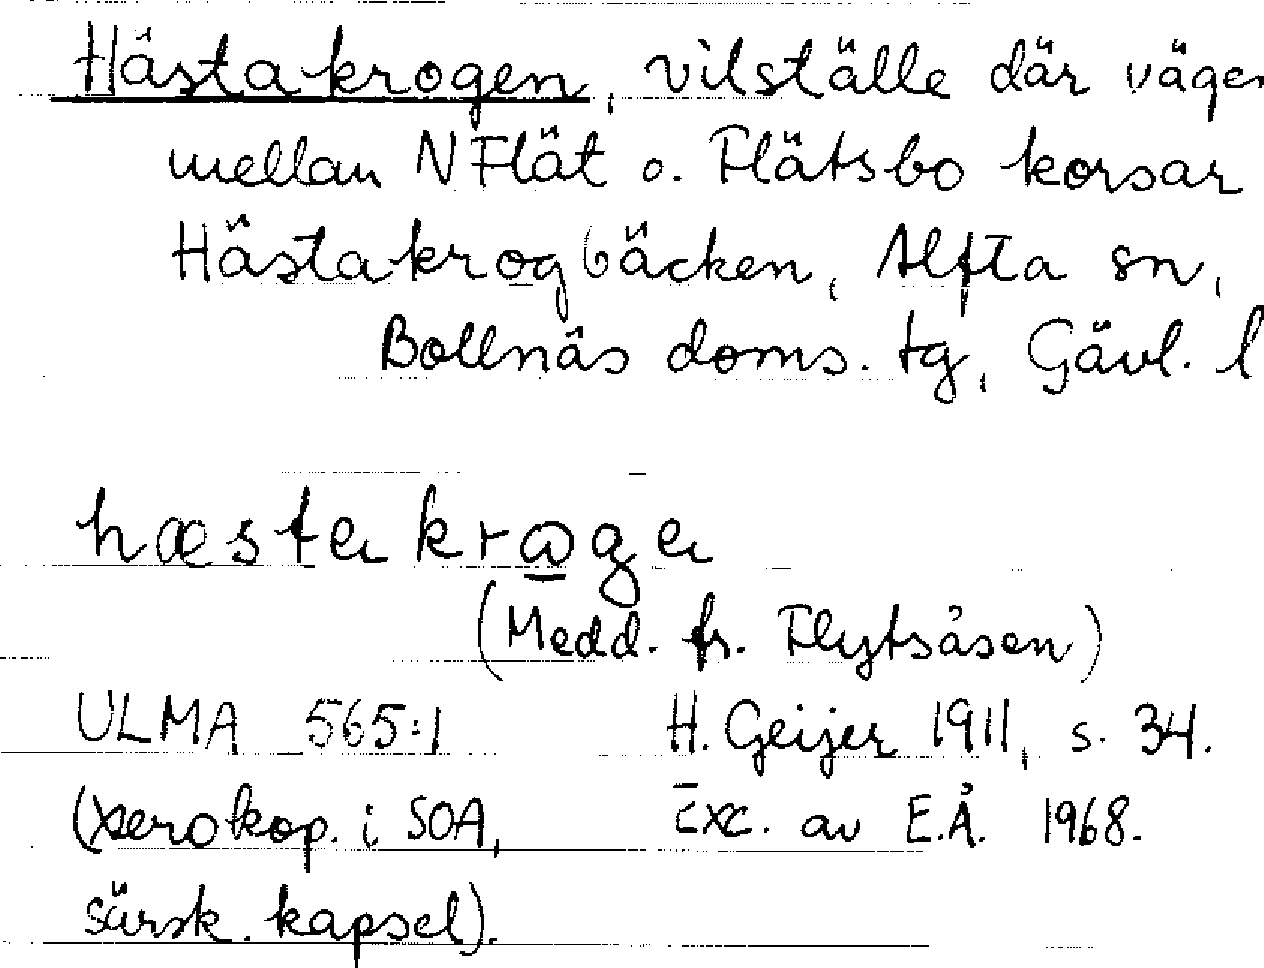 Hästakrogen, vilställe där vägen
mellan N Flät o. Flätsbo korsar
Hästakrogbäcken, Alfta sn,
Bollnäs doms. tg, Gävl. l
(Medd. fr. Flytsåsen)
ULMA 565:1 H. Geijer 1911, s. 34.
(xerokop. i SOA, Exc. av E.Å. 1968.
särsk. kapsel).